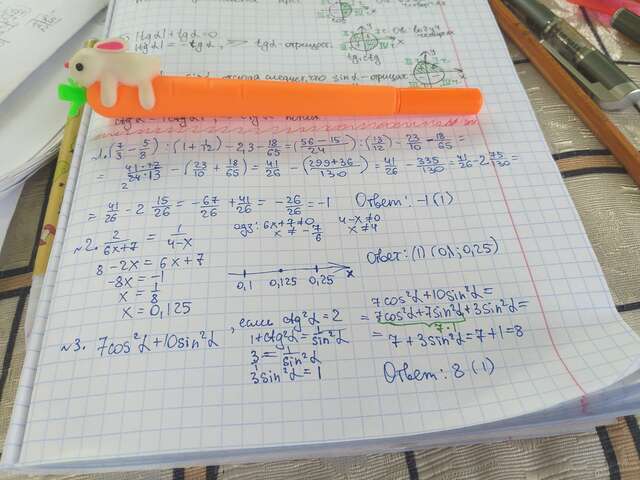 |tgα| + tgα = 0
|tgα| = -tgα, => tgα - отрицат.
tg, ctg
sinα - отрицат.
№1. (7/3 - 5/8) : (1 + 1/12) - 2,3 - 18/65 = (56 - 15/24) : (13/12) - 23/10 - 18/65 =
= 41·12/24·13 - (23/10 + 18/65) = 41/26 - (299+36/130) = 41/26 - 335/130 = 41/26 - 2 75/130 =
2
= 41/26 - 2 15/26 = -67/26 + 41/26 = -26/26 = -1 Ответ: -1 (1)
№2. 2/6x+7 = 1/4-x одз: 6x+7≠0 4-x≠0
x ≠ -7/6 x≠4
8 - 2x = 6x + 7 Ответ: (1) (0,1; 0,25)
-8x = -1
x = 1/8
x = 0,125
0,1 0,125 0,25 x
№3. 7cos²α + 10sin²α, если ctg²α = 2
1 + ctg²α = 1/sin²α
3 = 1/sin²α
3sin²α = 1
7cos²α + 10sin²α =
= 7cos²α + 7sin²α + 3sin²α =
7·1
= 7 + 3sin²α = 7 + 1 = 8
Ответ: 8 (1)